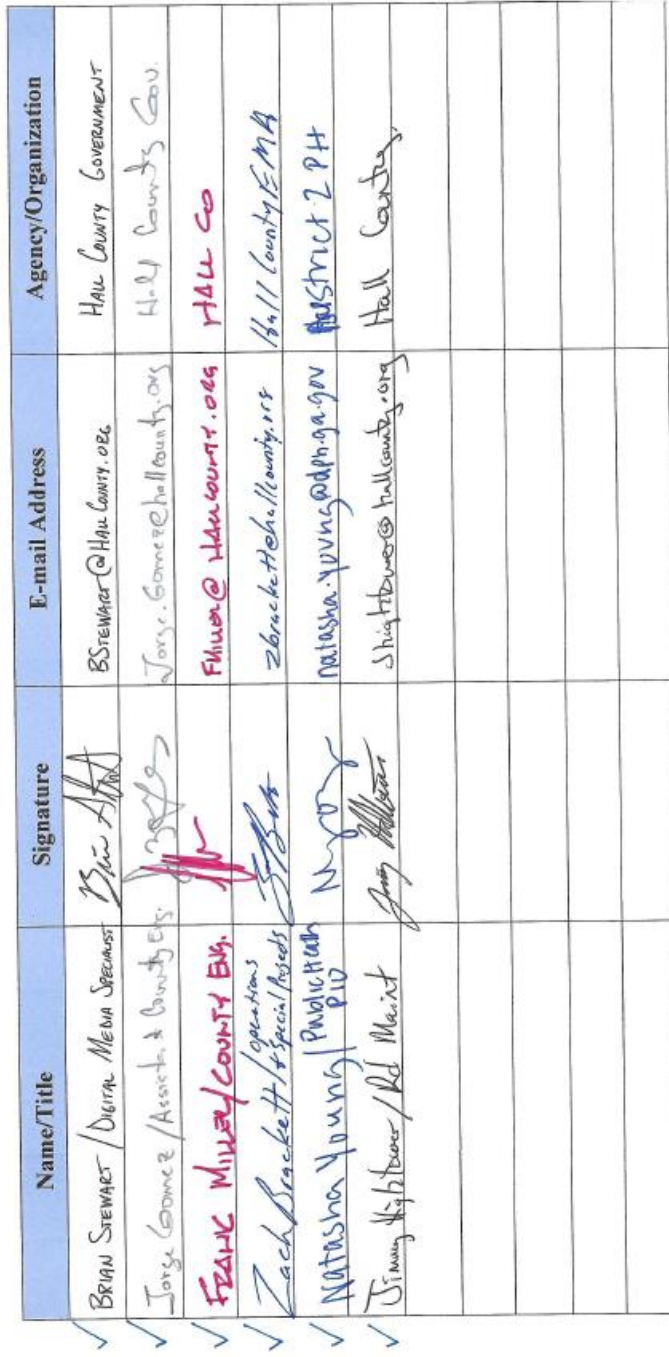 Name/Title Signature E-mail Address Agency/Organization
BRIAN STEWART / DIGITAL MEDIA SPECIALIST BSTEWART@HALLCOUNTY.ORG HALL COUNTY GOVERNMENT
Jorge Gomez / Assistant County Eng. Jorge.Gomez@hallcounty.org Hall County Gov.
FRANK MILLER/COUNTY ENG. FMiller@HALLCOUNTY.ORG HALL CO
Zach Brackett / Operations + Special Projects zbrackett@hallcounty.org Hall County EMA
Natasha Young / Public Heath PIO natasha.young@dph.ga.gov District 2 PH
Jimmy Hightower / Rd Maint Jhightower@hallcounty.org Hall County